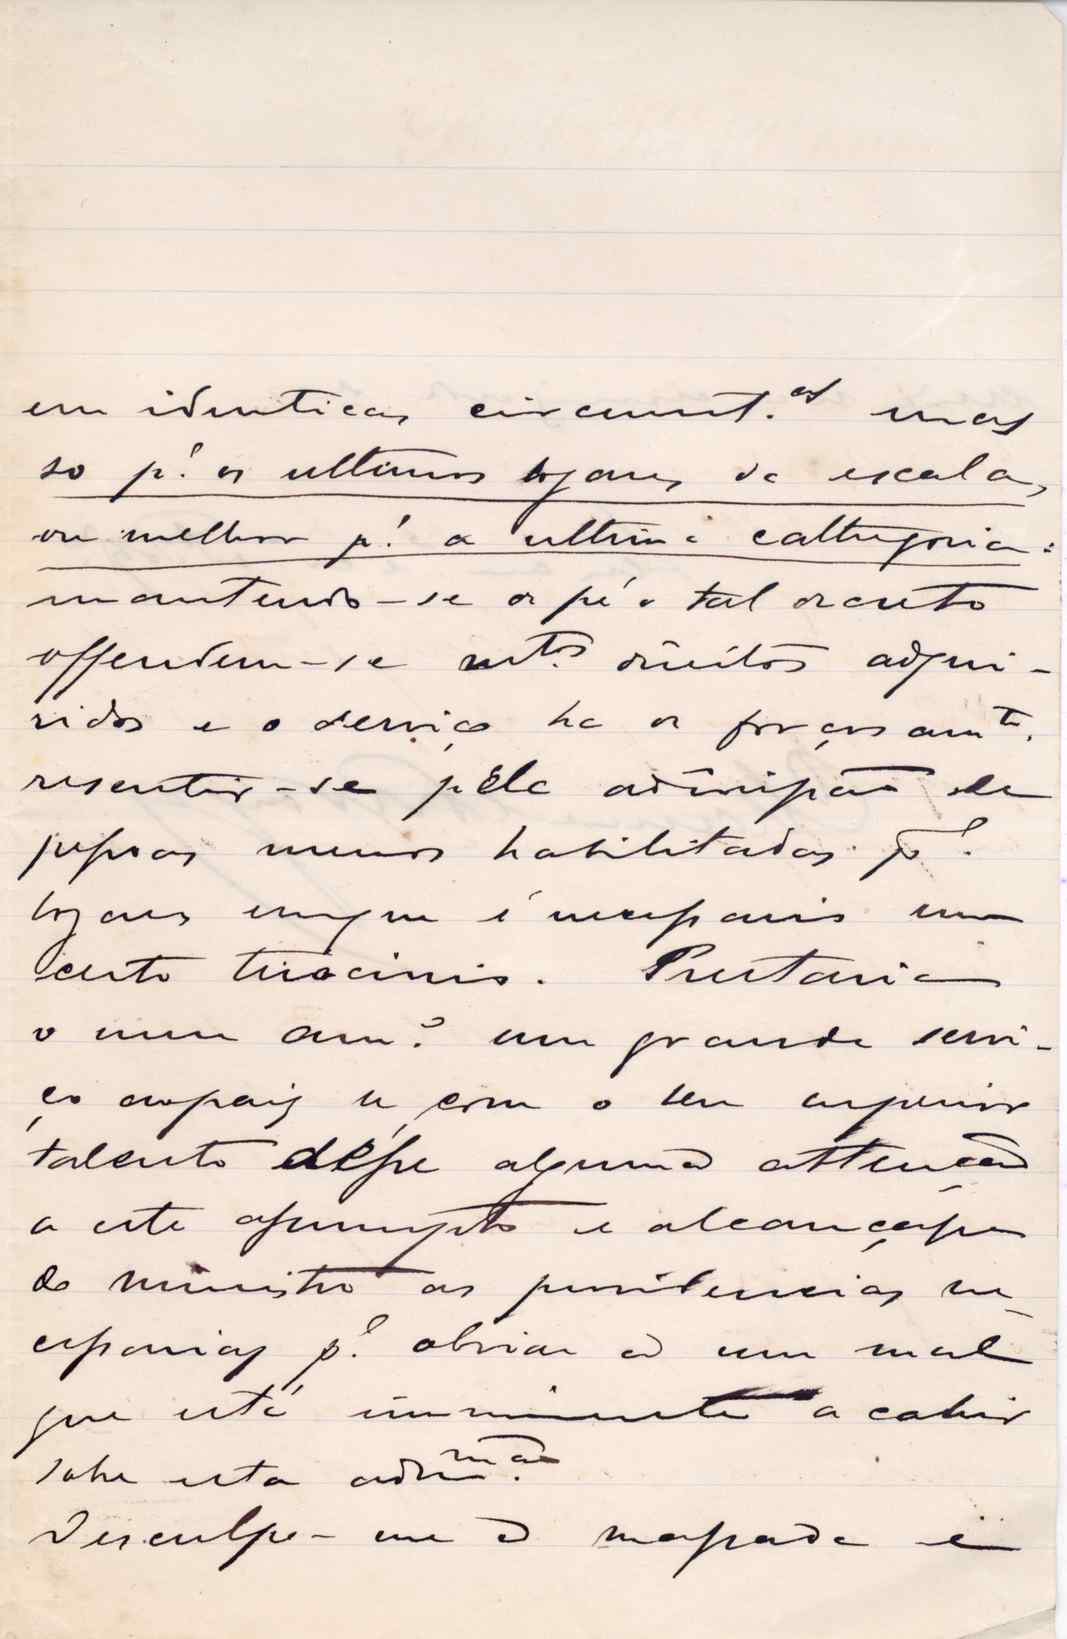 em identicas circumst.as mas
so p.a os ultimos logares da escala,
ou melhor p.a a ultima cathegoria:
mantendo-se de pé o tal decreto
offendem-se mtos direitos adqui-
ridos e o serviço ha de forçosamte.
resentir-se pela admissão de
pessoas menos habilitadas p.a
logares em que é necessario um
certo tirocinio. Prestaria
o meu am.o um grande servi-
ço ao paiz se com o seu superior
talento désse alguma attenção
a este assumpto e alcançasse
do ministro as providencias ne-
cessarias p.a obviar a um mal
que está imminente a cahir
sobre esta adm.mão
Desculpe-me a massada e